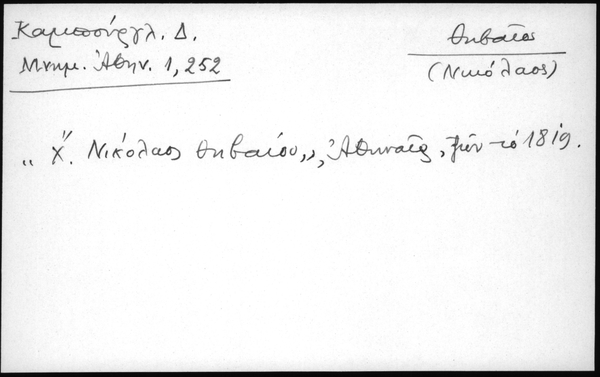 Καμπούργλ. Δ.
Μνημ. Ἀθην. 1, 252
Θηβαῖος
(Νικόλαος)
„ Χ΄΄. Νικόλαος Θηβαίου„, Ἀθηναῖος, ζῶν τό 1819.